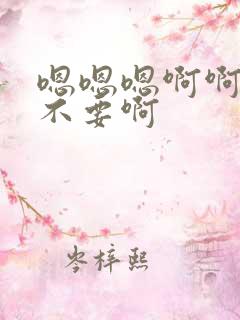 嗯嗯嗯啊啊
不要啊
岑梓熙